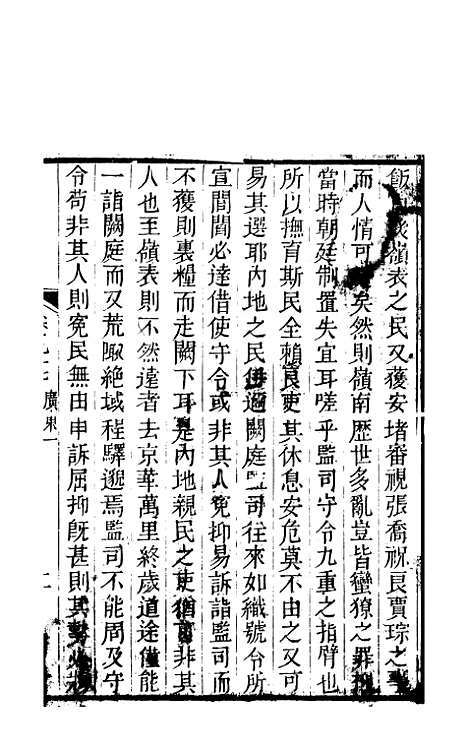 飯嶺表之民又獲安堵畨視張喬祝良賈琮之
而人情可矣然則嶺南歷世多亂豈皆蠻獠之罪
當時朝廷制置失宜耳嗟乎監司守令九重之指臂也
所以撫育斯民全賴良吏其休息安危莫不由之又可
易其選耶內地之民俱邇闕庭監司往來如織號令所
宣閭閻必達借使守令或非其人冤抑易訴詣監司而
不獲則裹糧而走闕下耳是內地親民之吏猶非其
人也至嶺表則不然遠者去京華萬里終歲道途僅能
一詣闕庭而又荒陬絕域程驛邈焉監司不能周及守
令苟非其人則冤民無由申訴屈抑旣甚則其勢必
廣東一
二